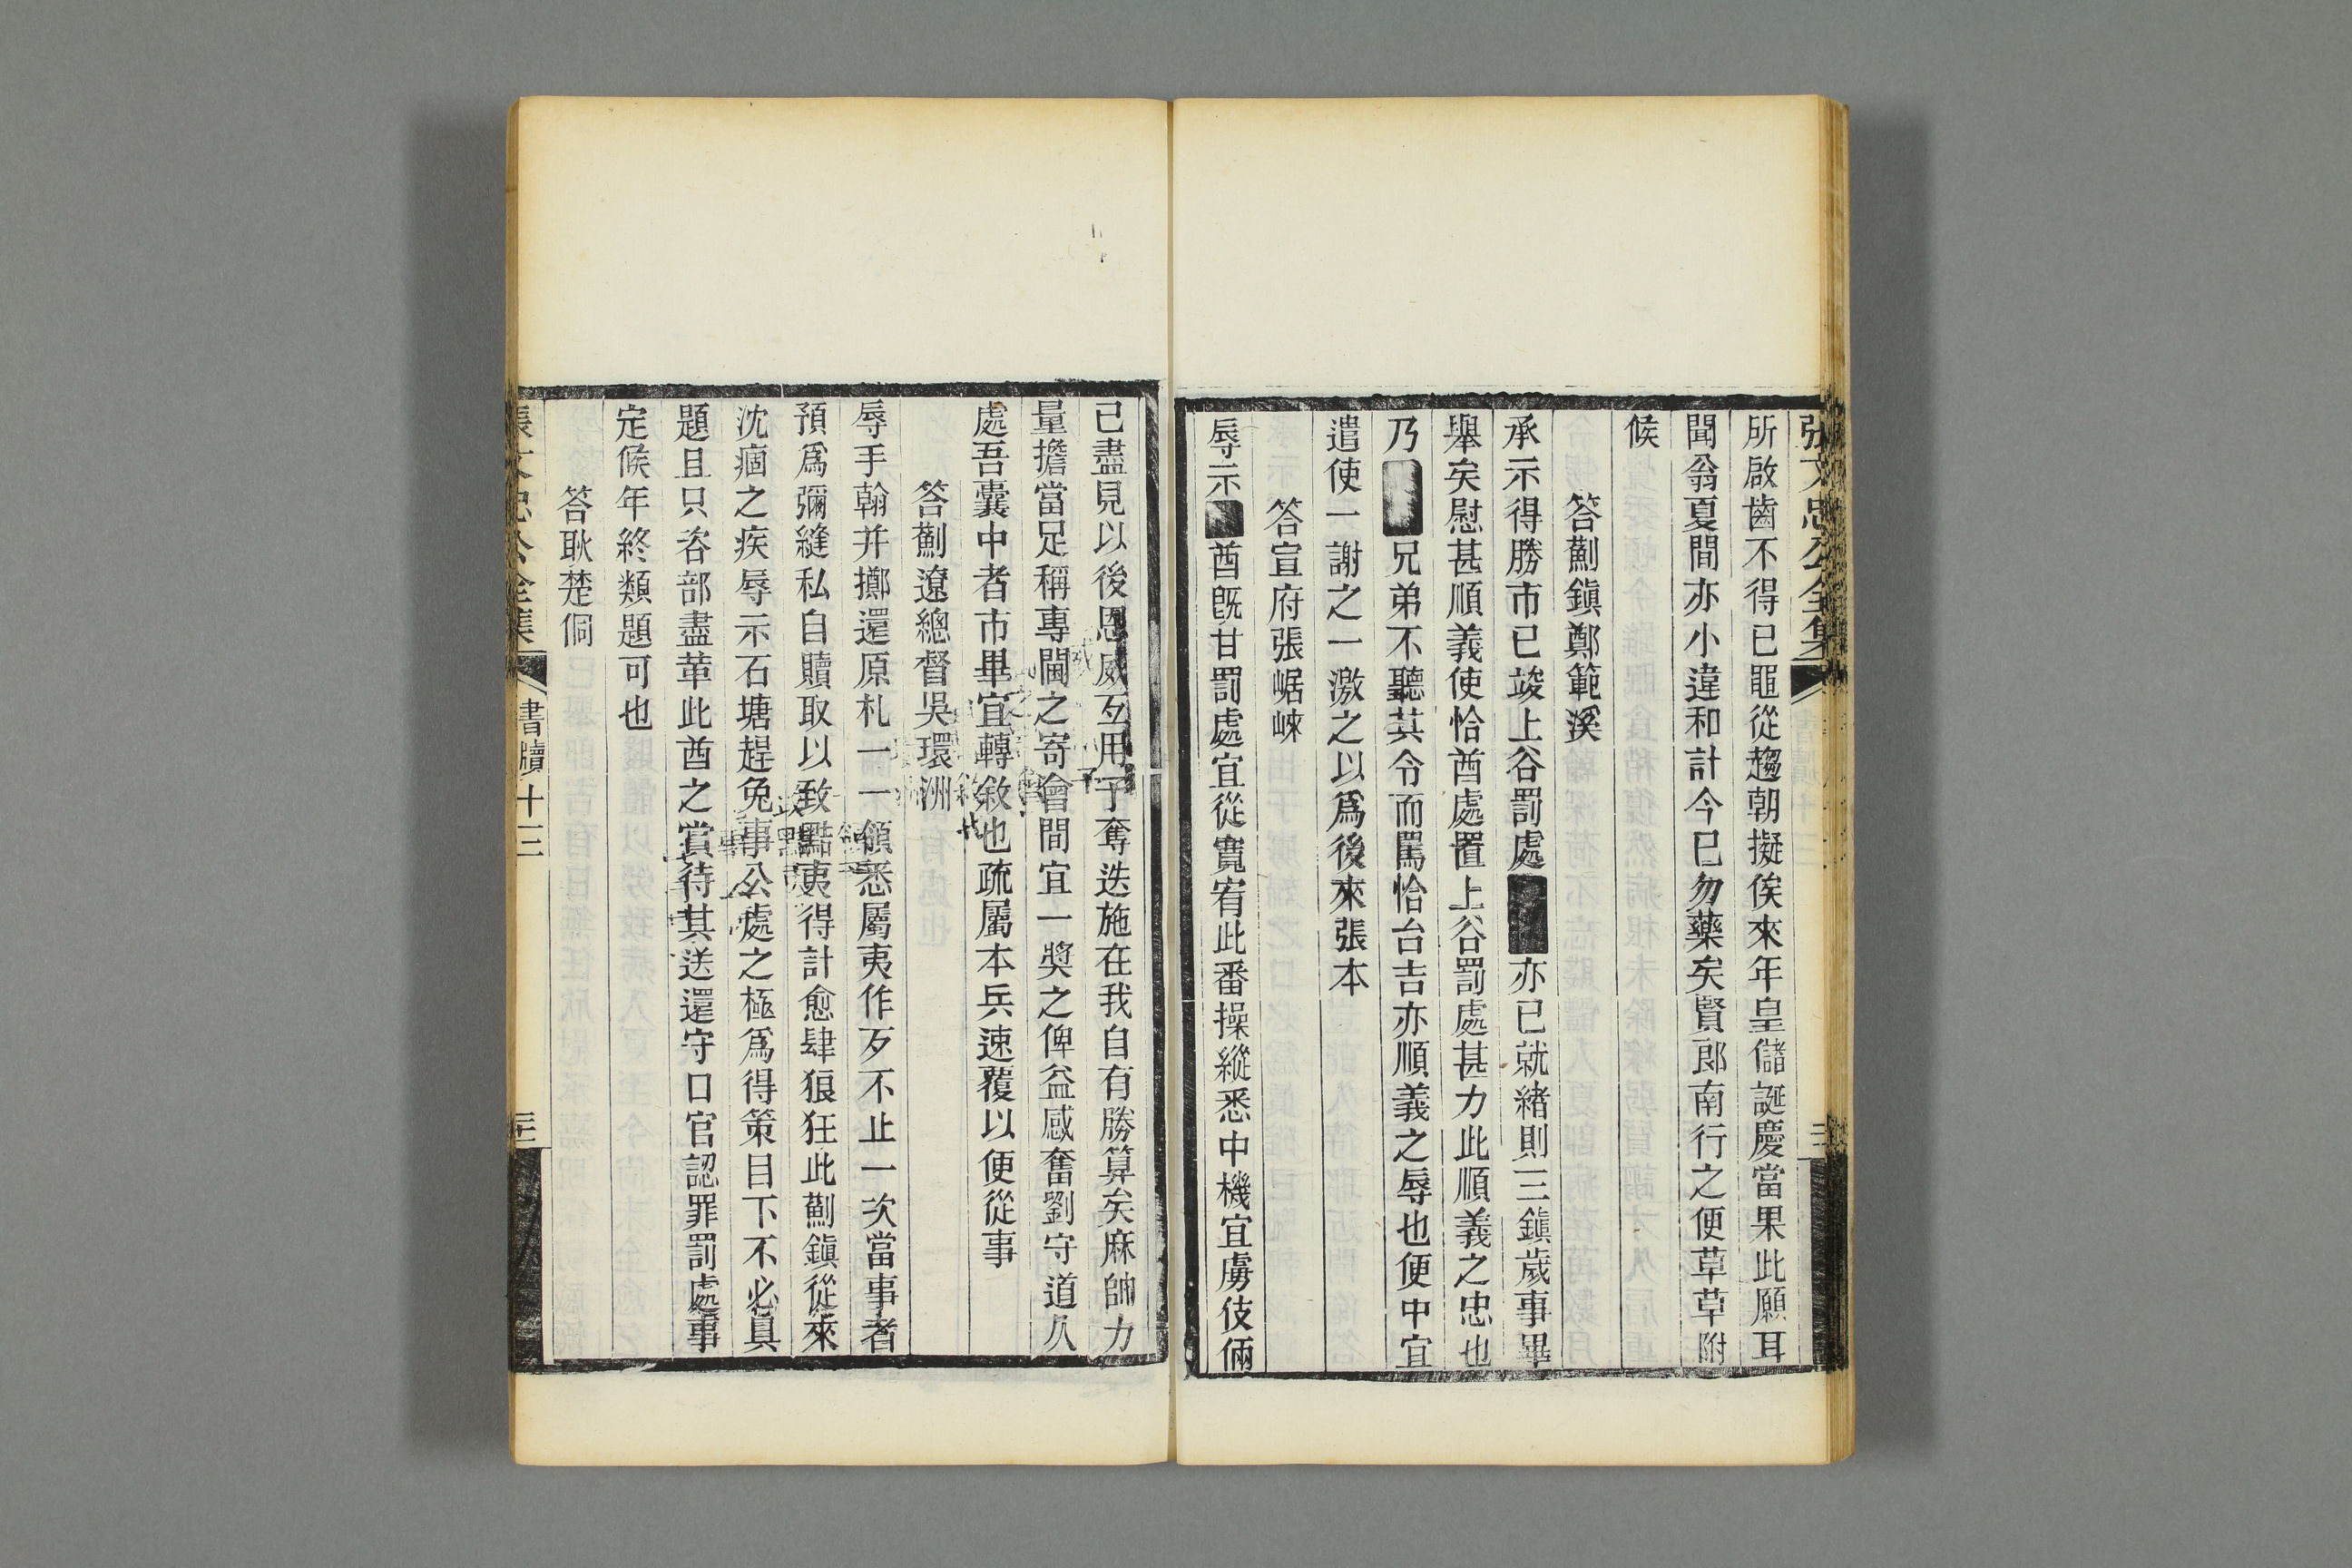 張文忠公全集
所啟齒不得已黽從趨朝擬俟來年皇儲誕慶當果此願耳
聞翁夏間亦小違和計今已勿藥矣賢郎南行之便草草附
候
答薊鎮鄭範溪
承示得勝市已竣上谷罰處亦已就緒則三鎮歲事畢
舉矣慰甚順義使恰酋處置上谷罰處甚力此順義之忠也
乃兄弟不聽其令而罵恰台吉亦順義之辱也便中宜
遣使一謝之一激之以爲後來張本
答宣府張崌崍
辱示酋旣甘罰處宜從寬宥此番操縱悉中機宜虜伎倆
已盡見以後恩威互用予奪迭施在我自有勝算矣麻帥力
量擔當足稱專閫之寄會間宜一奬之俾益感奮劉守道久
處吾囊中者市畢宜轉敘也疏屬本兵速覆以便從事
答薊遼總督吳環洲
辱手翰并擲還原札一一領悉屬夷作歹不止一次當事者
預爲彌縫私自贖取以致黠夷得計愈肆狼狂此薊鎮從來
沈痼之疾辱示石塘趕兔事公處之極爲得策目下不必具
題且只咨部盡革此酋之賞待其送還守口官認罪罰處事
定候年終類題可也
答耿楚侗
張文忠公全集 書牘十三